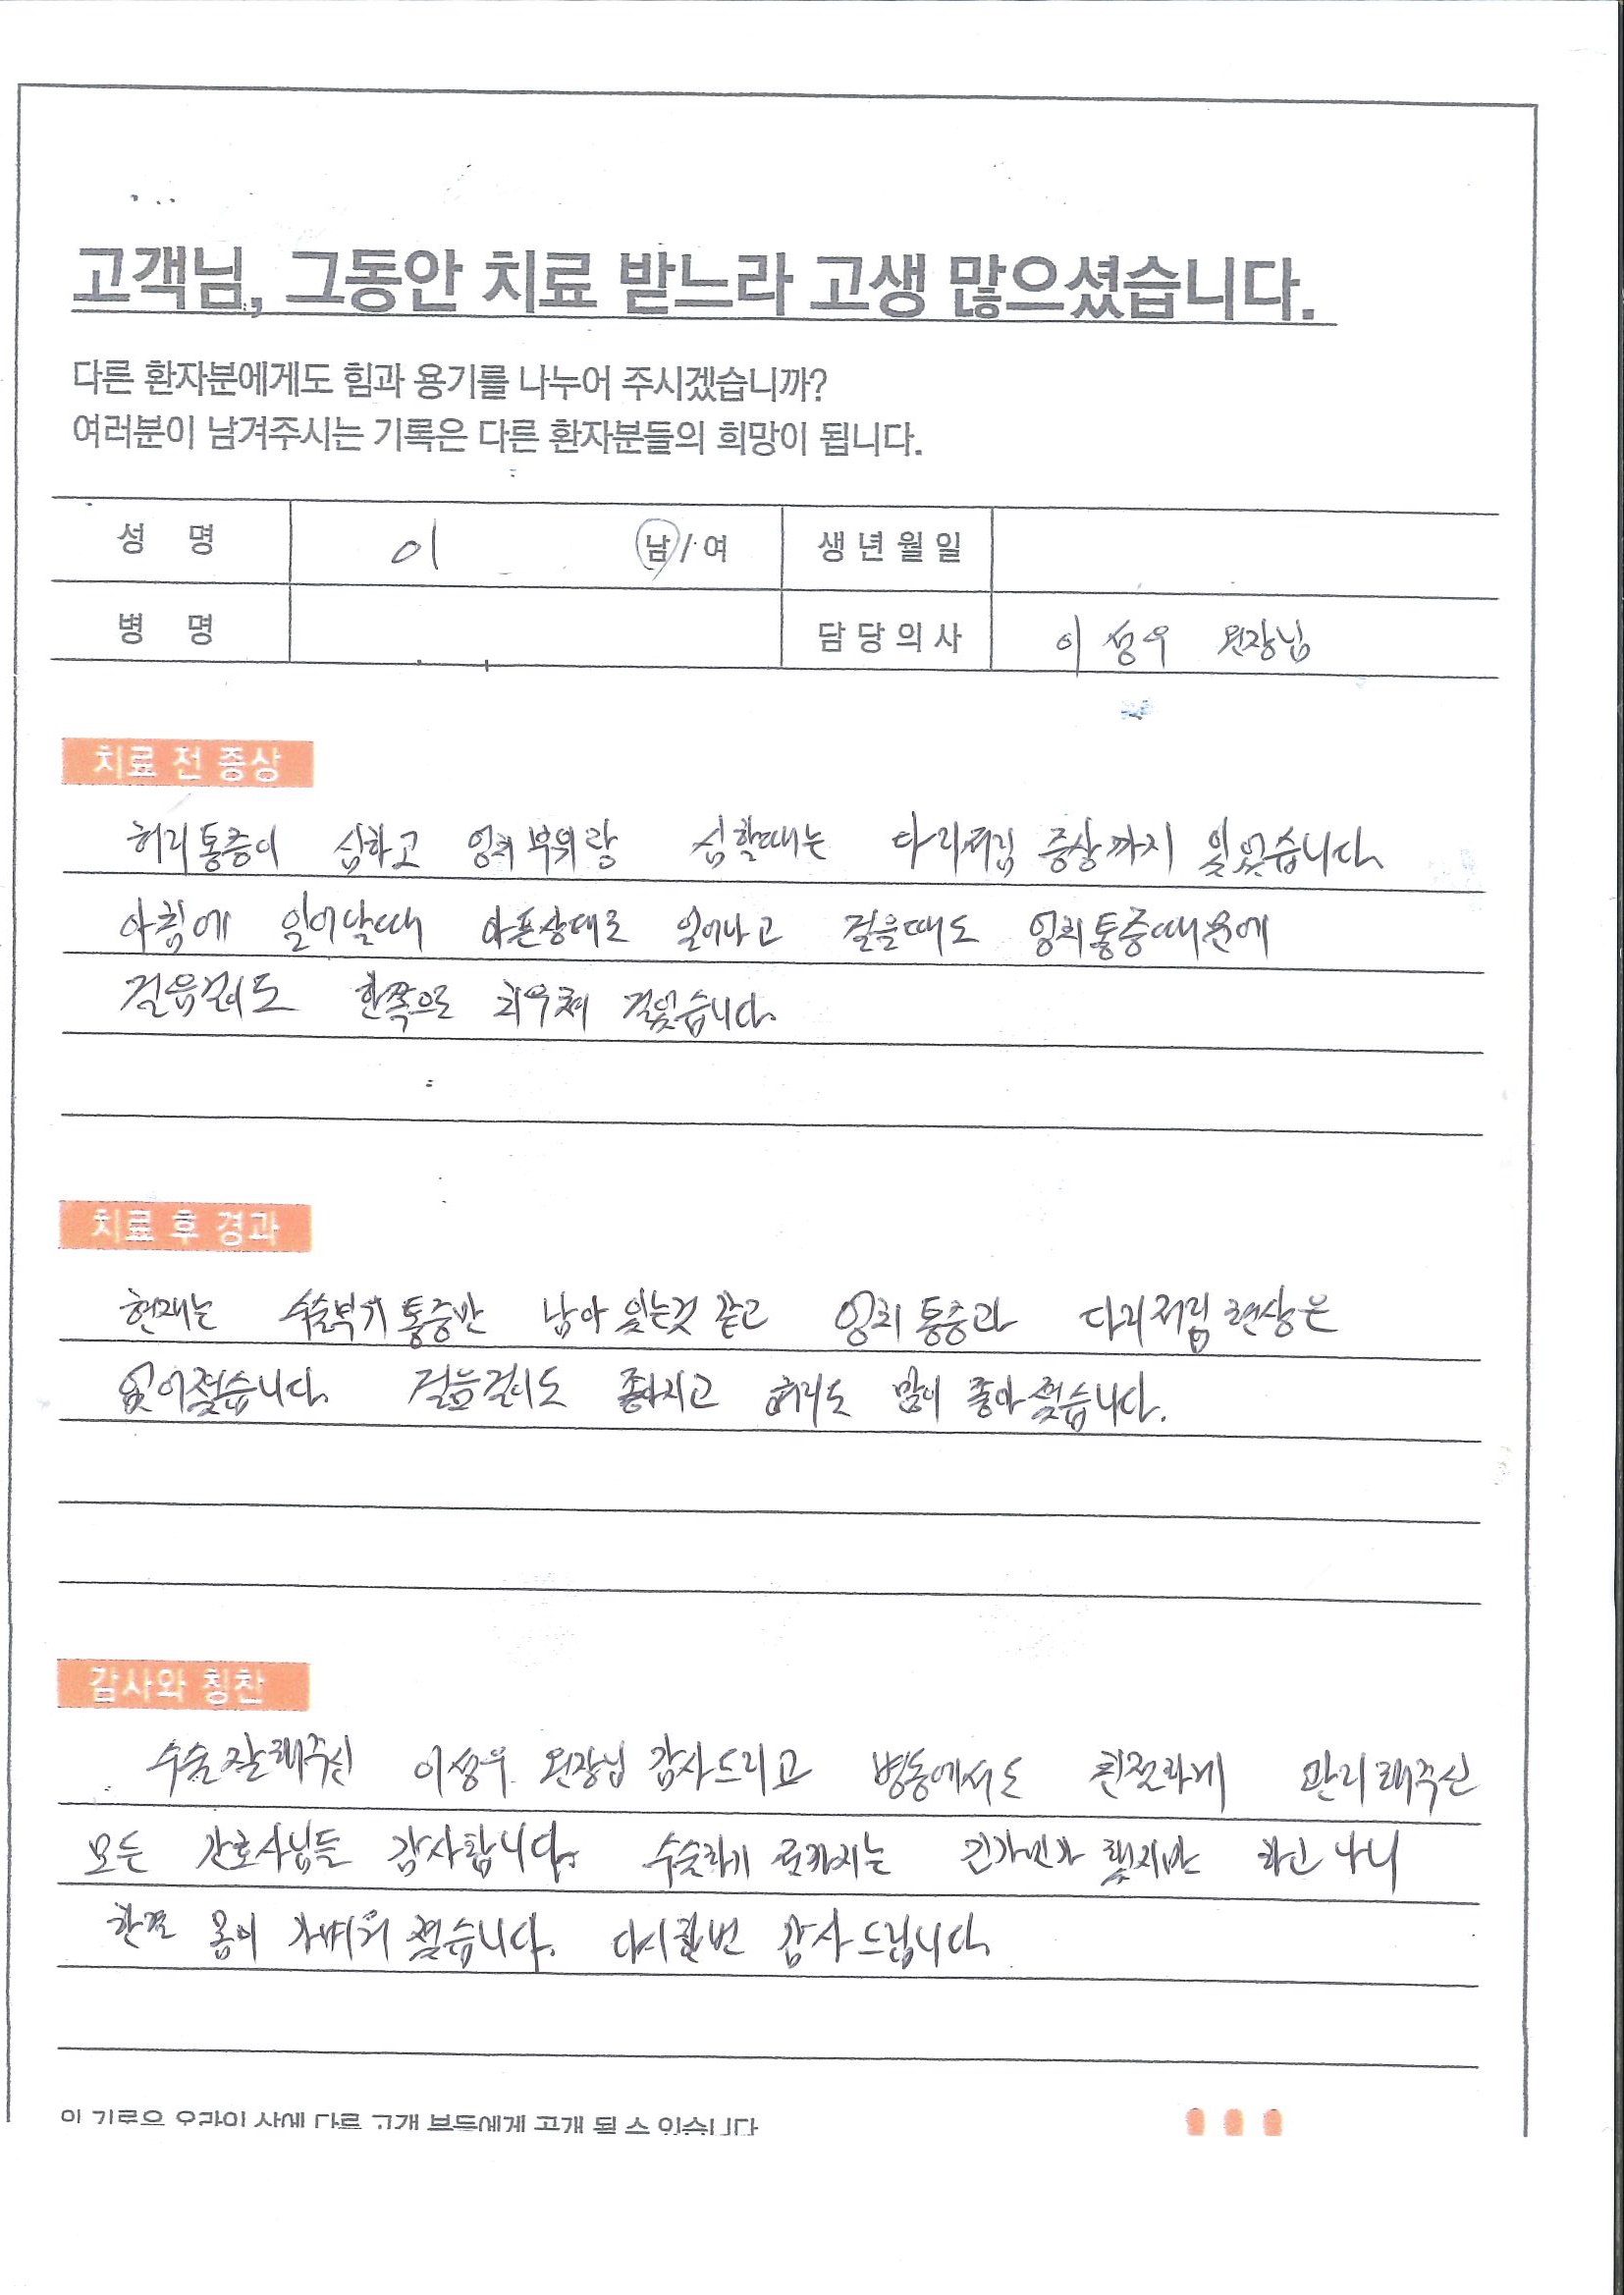 고객님, 그동안 치료 받느라 고생 많으셨습니다.
다른 환자분에게도 힘과 용기를 나누어 주시겠습니까?
여러분이 남겨주시는 기록은 다른 환자분들의 희망이 됩니다.
성 명 이 남/여 생년월일
병 명 담당의사 이성우 원장님
치료 전 증상
허리통증이 심하고 엉치부위랑 심할때는 다리저림 증상까지 있었습니다.
아침에 일어날때 아픈상태로 일어나고 걸을때도 엉치통증때문에
걸음걸이도 한쪽으로 치우쳐 걸었습니다.
치료 후 경과
현재는 수술부위통증만 남아 있는것 같고 엉치통증과 다리저림현상은
없어졌습니다. 걸음걸이도 좋아지고 허리도 많이 좋아졌습니다.
감사와 칭찬
수술잘해주신 이성우 원장님 감사드리고 병동에서도 친절하게 관리해주신
모든 간호사님들 감사합니다. 수술하기 전까지는 긴가민가 했지만 하고나니
한결 몸이 가벼워졌습니다. 다시한번 감사드립니다.
이 기록은 온라인 상에 다른 고객 분들에게 공개 될 수 있습니다